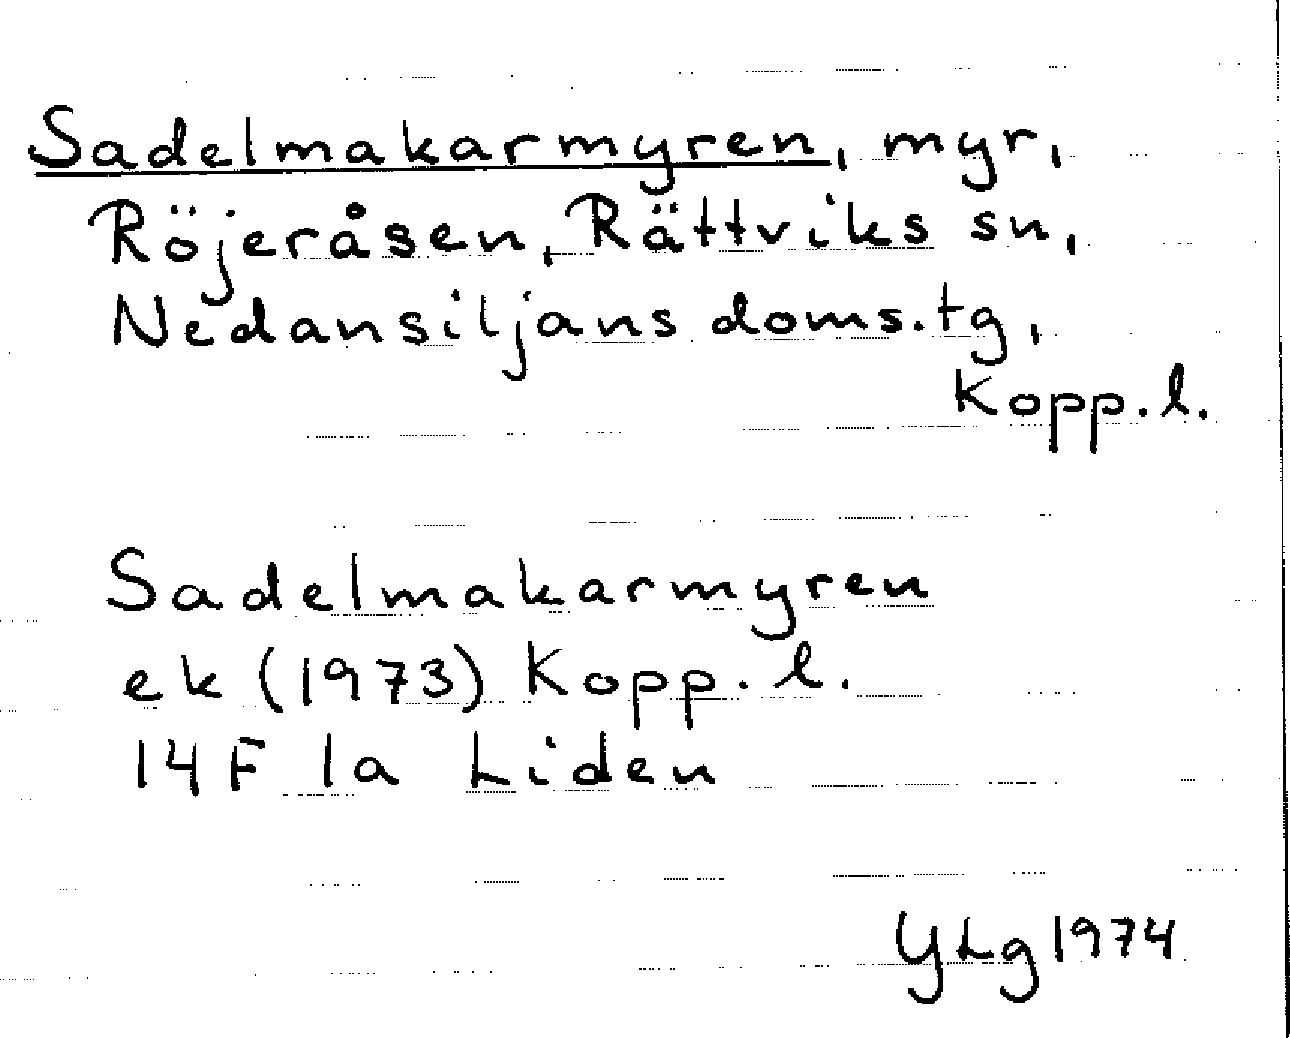 Sadelmakarmyren, myr,
Röjeråsen, Rättviks sn,
Nedansiljans doms.tg,
Kopp.l.
Sadelmakarmyren
ek (1973) Kopp.l.
14F 1a Liden
YLg 1974